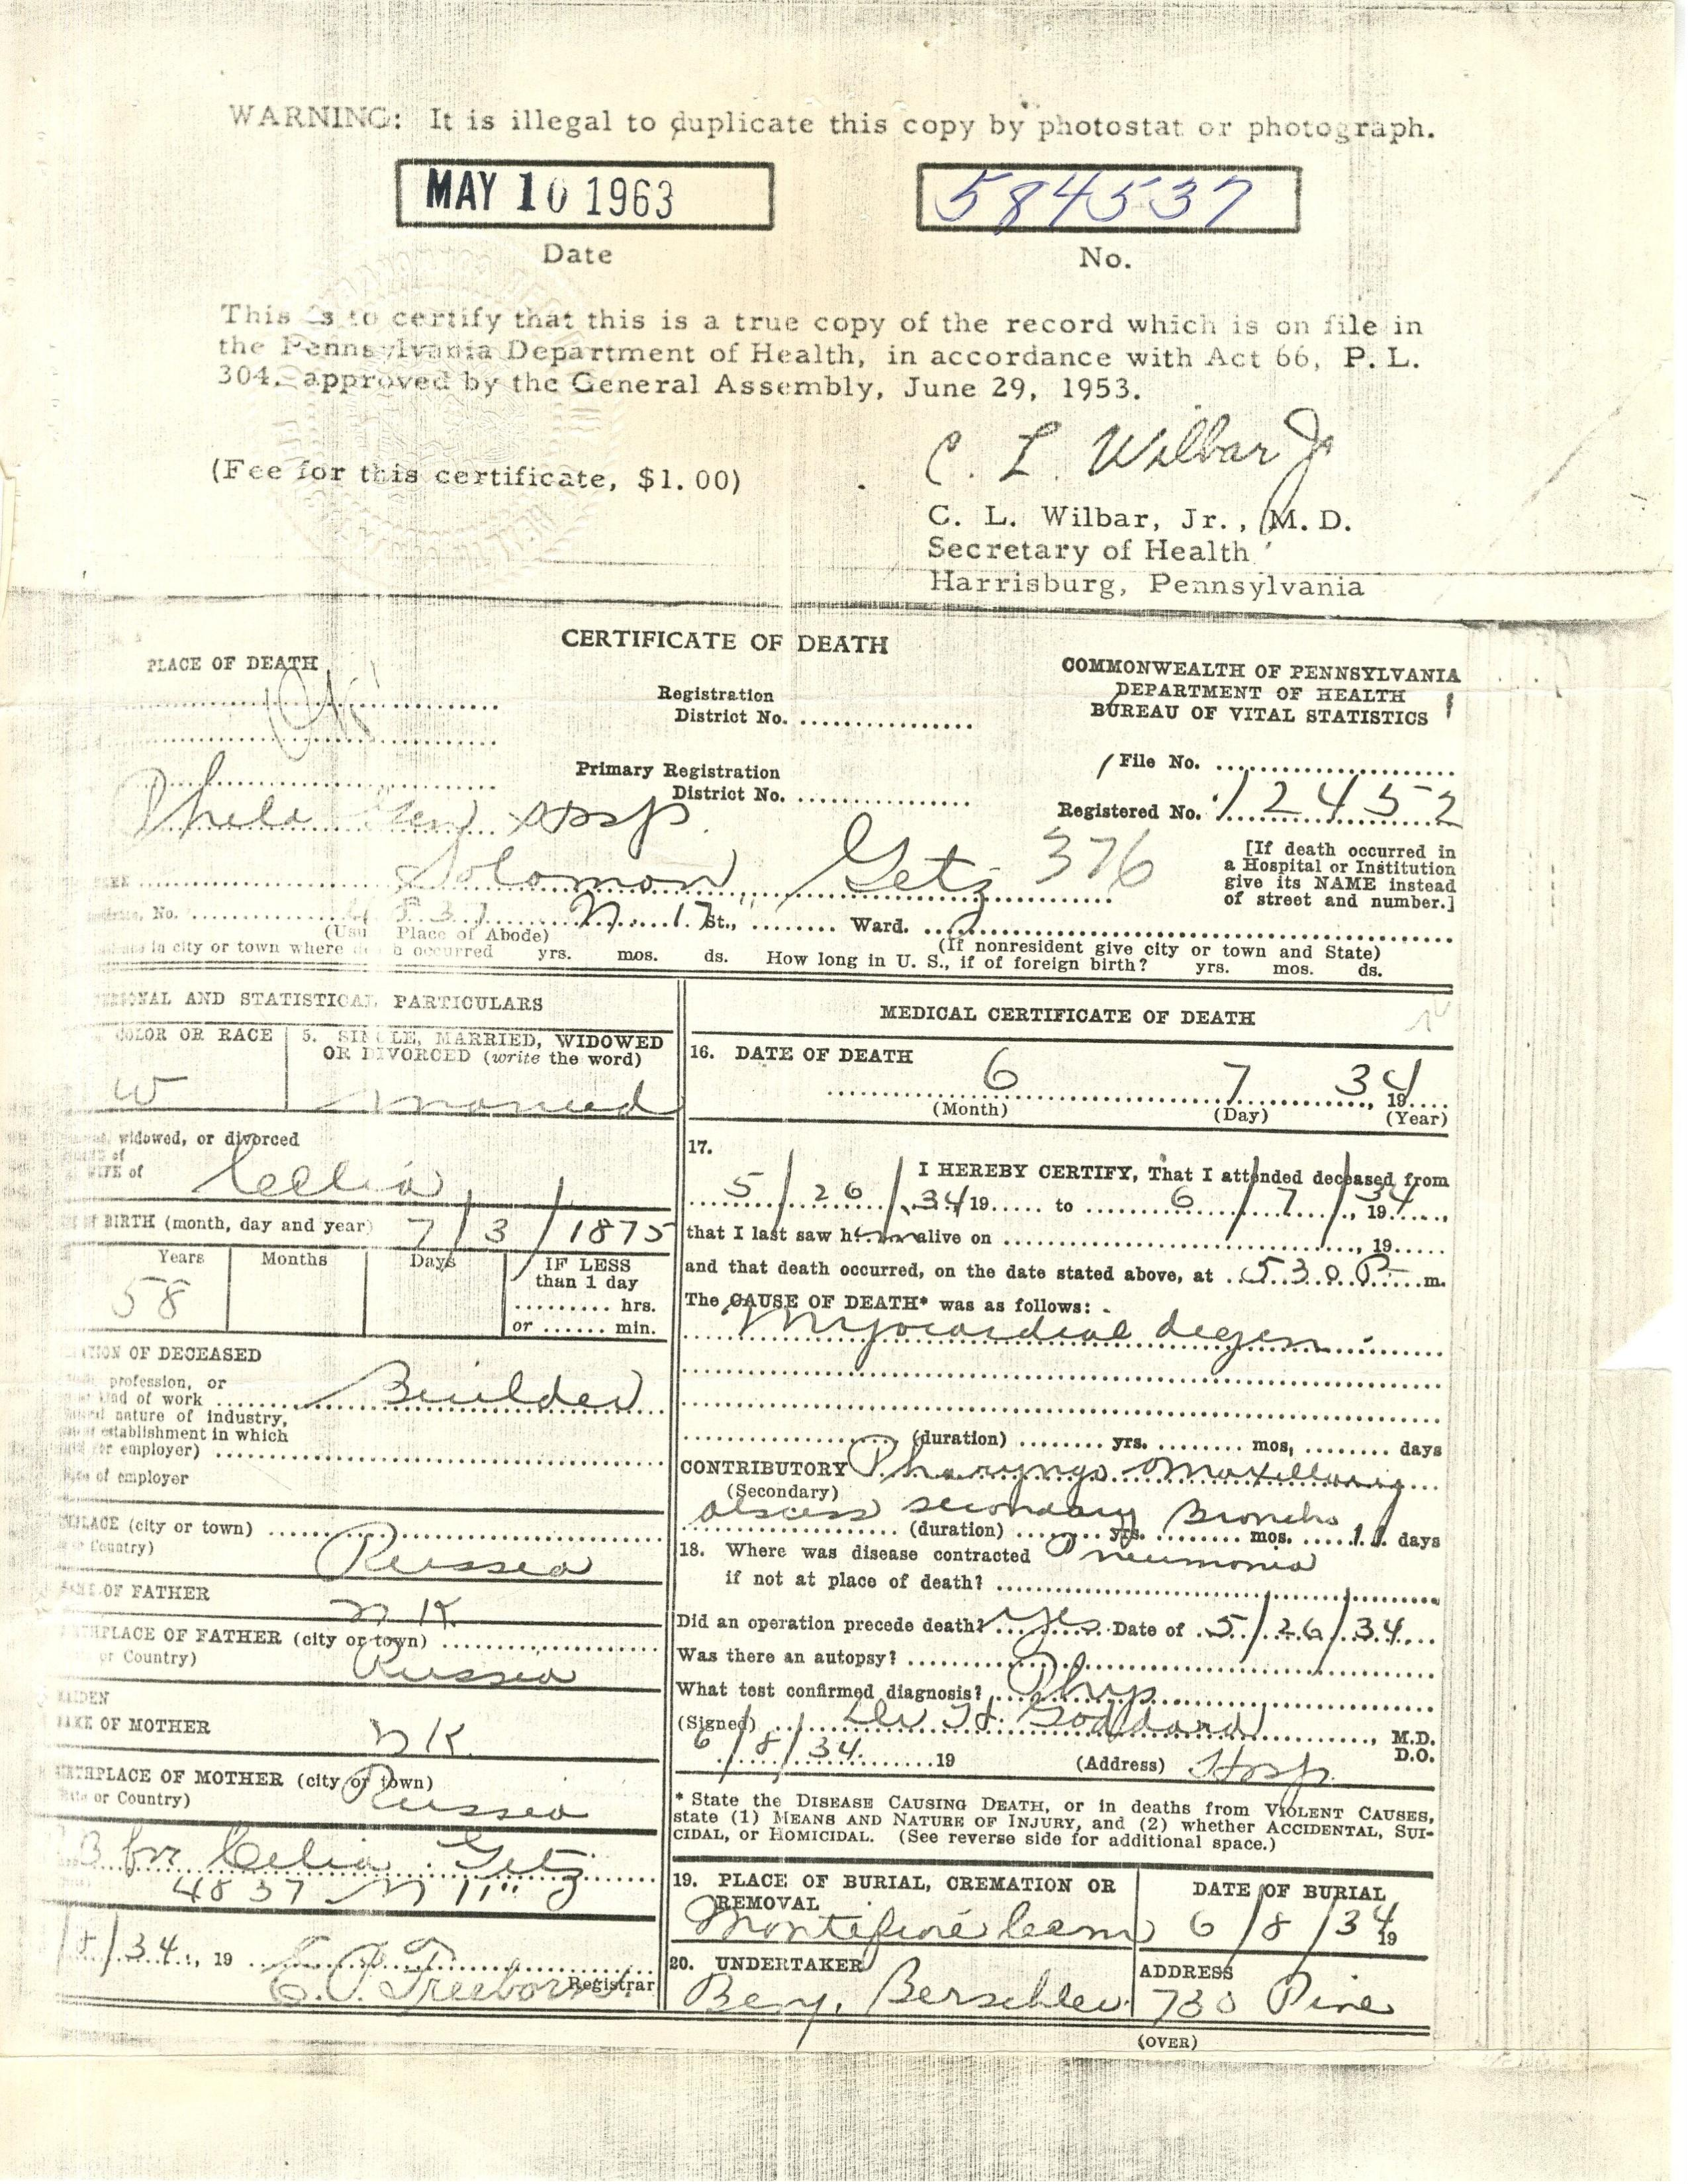 WARNING: It is illegal to duplicate this copy by photostat or photograph.
MAY 10 1963
584537
Date
No.
This is to certify that this is a true copy of the record which is on file in
the Pennsylvania Department of Health, in accordance with Act 66, P. L.
304, approved by the General Assembly, June 29, 1953.
C. L. Wilbar Jr
(Fee for this certificate, $1.00)
C. L. Wilbar, Jr., M. D.
Secretary of Health
Harrisburg, Pennsylvania
CERTIFICATE OF DEATH
PLACE OF DEATH
COMMONWEALTH OF PENNSYLVANIA
DEPARTMENT OF HEALTH
BUREAU OF VITAL STATISTICS
Registration
District No.
Primary Registration
District No.
File No.
Registered No. 12452
Phila Gen Hosp.
Solomon Getz 376
[If death occurred in
a Hospital or Institution
give its NAME instead
of street and number.]
No. N. 17 St., Ward.
(Usu Place of Abode)
(If nonresident give city or town and State)
in city or town where occurred yrs. mos. ds. How long in U. S., if of foreign birth? yrs. mos. ds.
PERSONAL AND STATISTICAL PARTICULARS
COLOR OR RACE
W
5. SINGLE, MARRIED, WIDOWED
OR DIVORCED (write the word)
married
widowed, or divorced
of
WIFE of
Cecelia
OF BIRTH (month, day and year) 7/3/1875
Years Months Days
58
IF LESS
than 1 day
hrs.
or min.
OF DECEASED
profession, or
kind of work Builder
nature of industry,
establishment in which
or employer)
of employer
(city or town)
Country)
Russia
OF FATHER
N K
OF FATHER (city or town)
or Country)
Russia
MAIDEN
OF MOTHER
N K
BIRTHPLACE OF MOTHER (city or town)
or Country)
Russia
for Celia Getz
4837 N 11"
8/34, 19
Registrar
MEDICAL CERTIFICATE OF DEATH
16. DATE OF DEATH
6 7 1934
(Month) (Day) (Year)
17.
I HEREBY CERTIFY, That I attended deceased from
5/26/34 19 to 6/7/, 1934,
that I last saw him alive on , 19
and that death occurred, on the date stated above, at 530 P m.
The CAUSE OF DEATH* was as follows:
Myocardial degen.
(duration) yrs. mos, days
CONTRIBUTORY Pharyngo Maxillary
(Secondary)
abscess secondary Broncho
(duration) yrs. mos. 11 days
18. Where was disease contracted Pneumonia
if not at place of death?
Did an operation precede death? Yes Date of 5/26/34
Was there an autopsy?
What test confirmed diagnosis? Phys
(Signed) H. Goddard, M.D.
D.O.
6/8/34 19 (Address) Hosp.
* State the DISEASE CAUSING DEATH, or in deaths from VIOLENT CAUSES,
state (1) MEANS AND NATURE OF INJURY, and (2) whether ACCIDENTAL, SUI-
CIDAL, or HOMICIDAL. (See reverse side for additional space.)
19. PLACE OF BURIAL, CREMATION OR
REMOVAL
Montefiore Cem
DATE OF BURIAL
6/8/34 19
20. UNDERTAKER
Benj. Berschler
ADDRESS
730 Pine
(OVER)